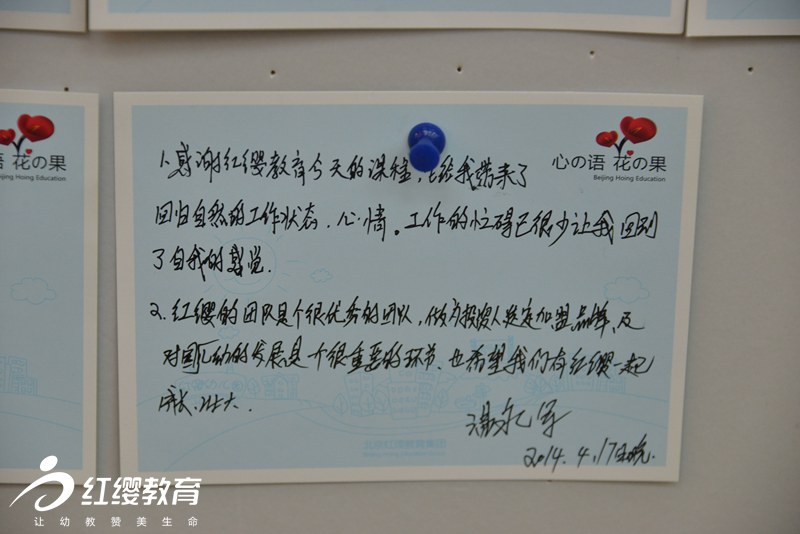 语 花の果
Beijing Hoing Education
心の语 花の果
Beijing Hoing Education
1、感谢红缨教育今天的课程，它给我带来了
回归自然的工作状态、心情。工作的忙碌已很少让我回到
了自我的感觉.
2、红缨的团队是个很优秀的团队，做为投资人选定加盟品牌、及
对国幼的发展是个很重要的环节、也希望我们有红缨一起
成长、壮大.
2014.4.17日晚.
北京红缨教育集团
红缨教育
让幼教赞美生命